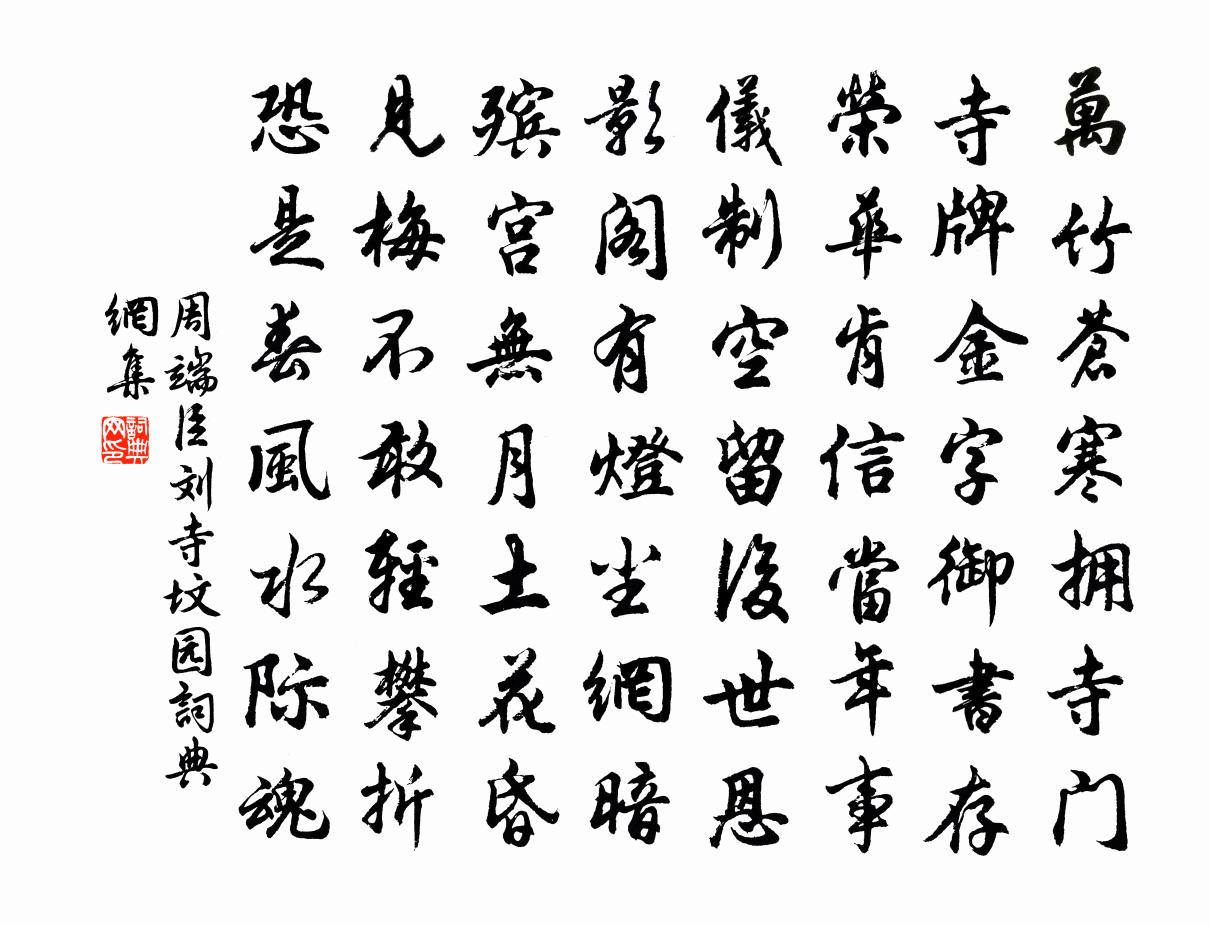 萬竹蒼寒拥寺门
寺牌金字御書存
榮華肯信當年事
儀制空留後世恩
影阁有燈尘網暗
殡宫無月土花昏
見梅不敢輕攀折
恐是春風水际魂
周端臣刘寺坟园詞典
網集
詞典网印